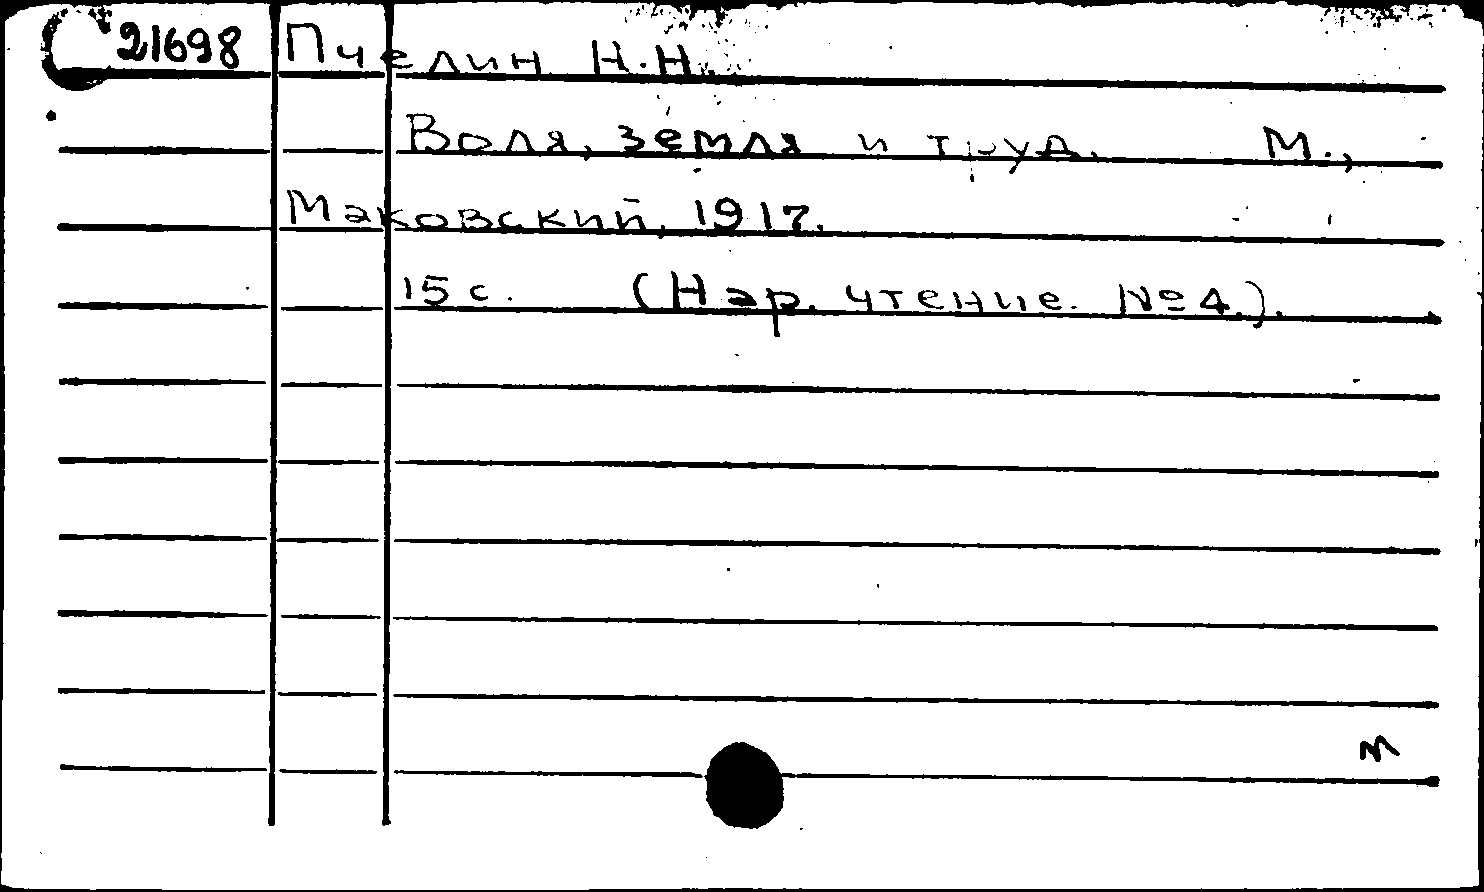 21698 Пчелин Н.Н.
Воля, земля и труд. М.,
Маковский, 1917.
15 с. (Нар. чтение. № 4.).
м